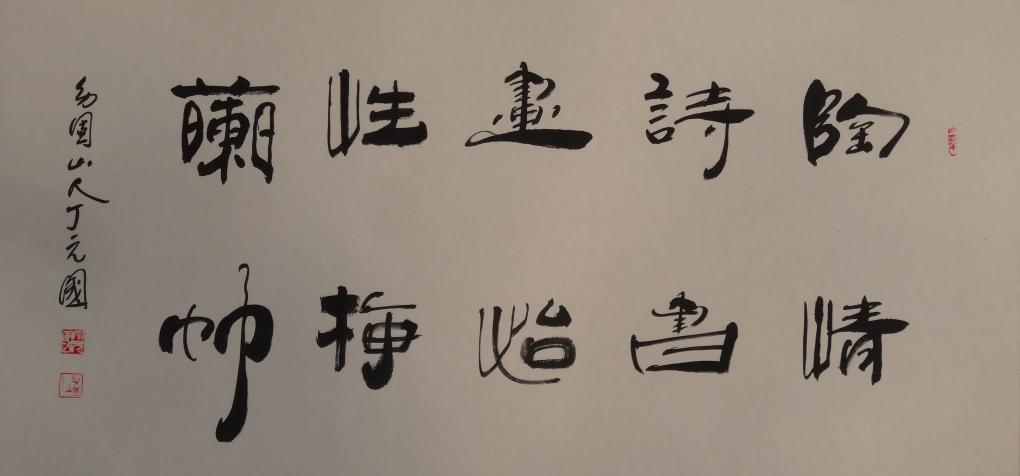 陶情
詩書
畫怡
性梅
蘭竹
園山人丁元國